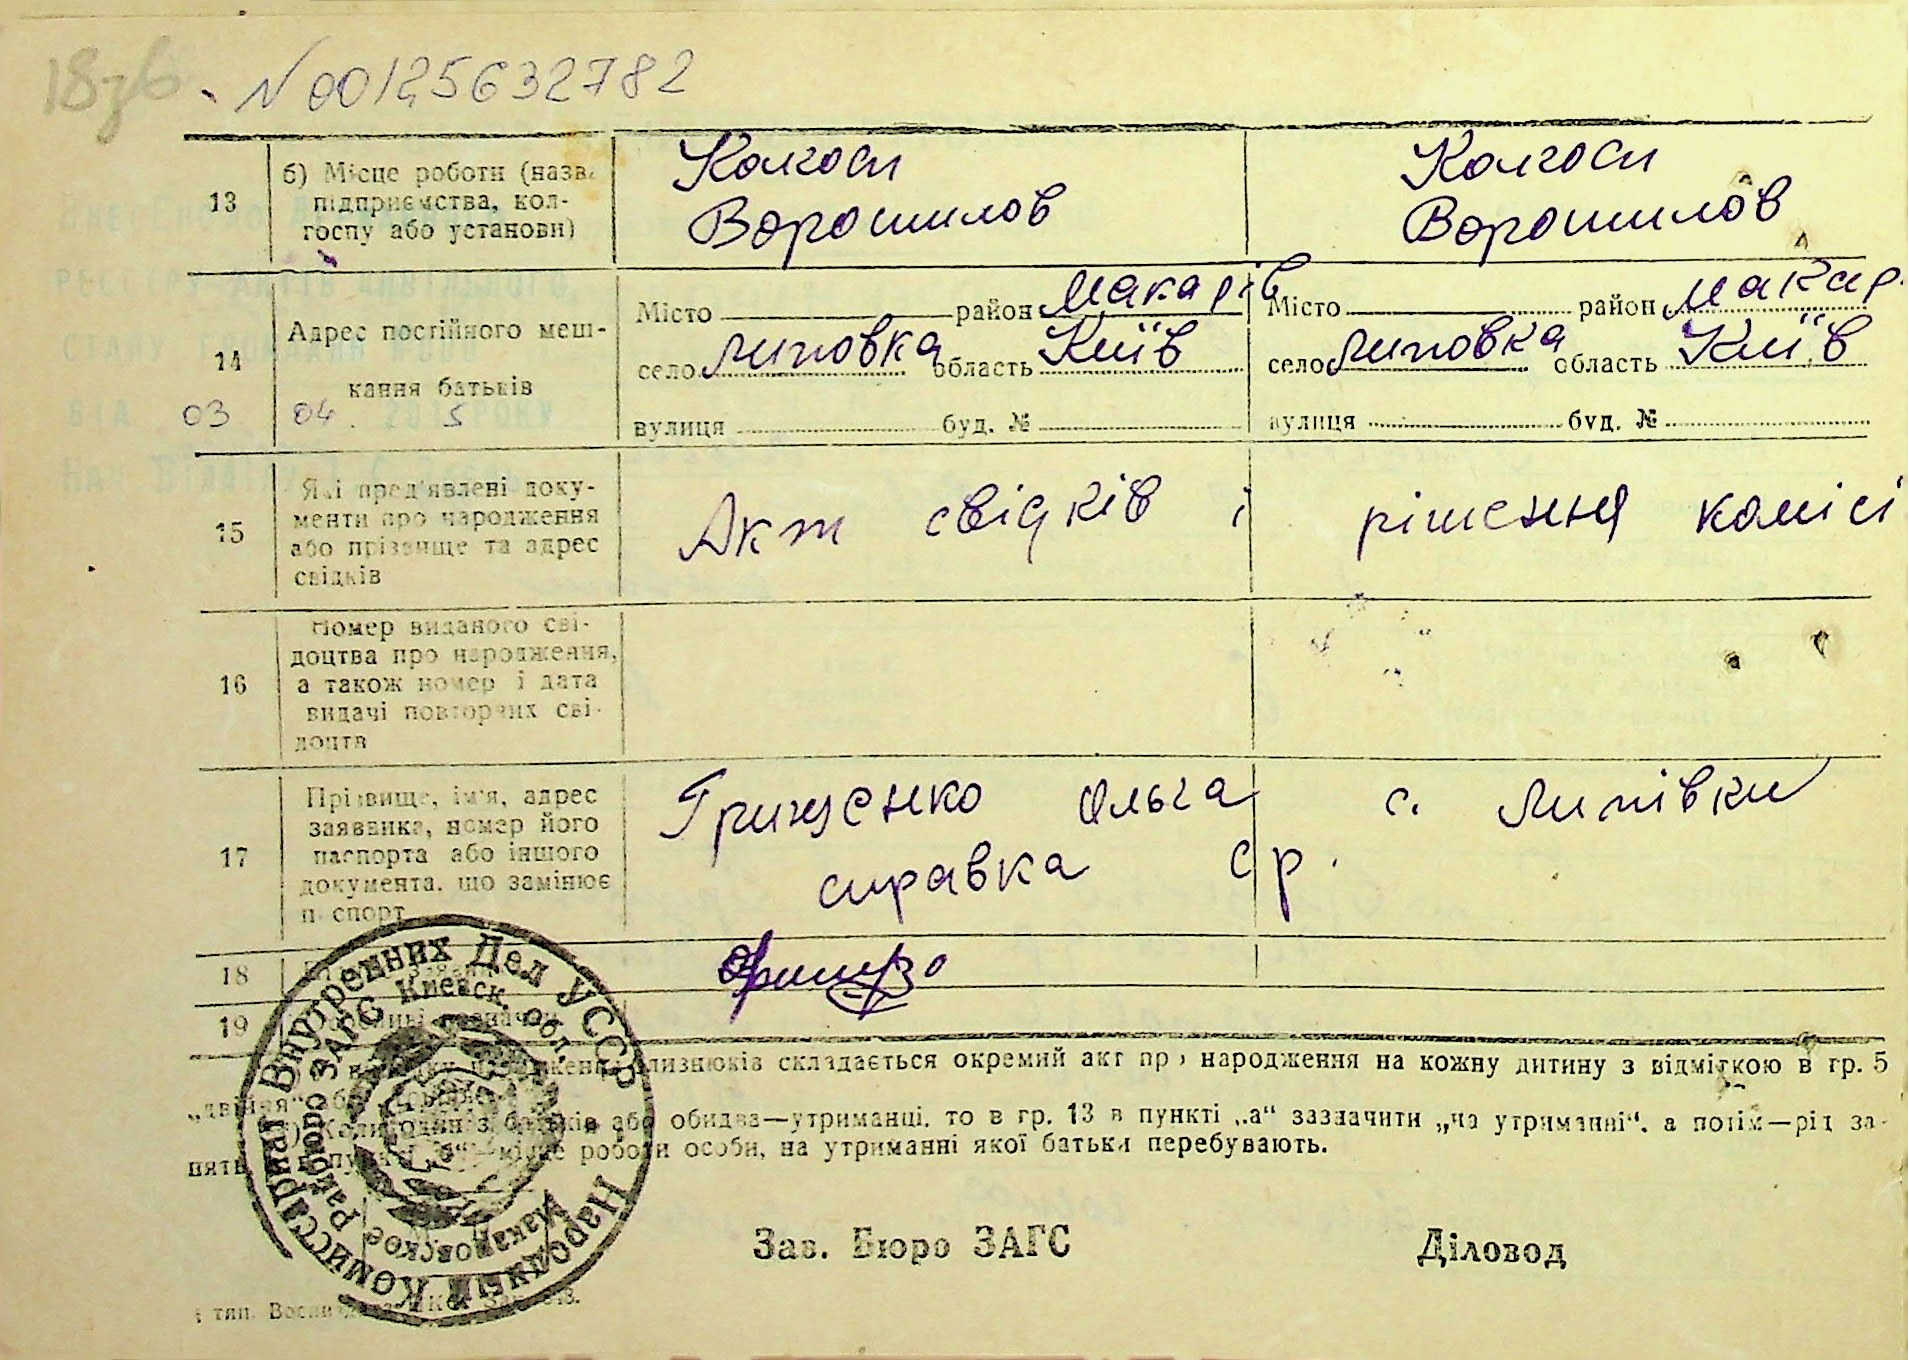 18зб
N 00125632782
13
б) Місце роботи (назва
підприємства, кол-
госпу або установи)
Колгосп
Ворошилов
Колгосп
Ворошилов
14
Адрес постійного меш-
кання батьків
03 04 5
Місто район Макарів
село Липовка область Київ
вулиця буд. №
Місто район Макар.
село Липовка область Київ
вулиця буд. №
15
Які пред'явлені доку-
менти про народження
або прізвище та адрес
свідків
Акт свідків і рішення комісі
16
Номер виданого сві-
доцтва про народження,
а також номер і дата
видачі повторних сві-
доцтв
17
Прізвище, ім'я, адрес
заявника, номер його
паспорта або іншого
документа, що замінює
паспорт
Грищенко Ольга с. Липівки
справка с/р.
18
19
близнюків складається окремий акт про народження на кожну дитину з відміткою в гр. 5
„двійня“ або
Коли один з батьків або обидва—утриманці, то в гр. 13 в пункті „а“ зазначити „на утриманні“, а потім—рід за-
нять, в пункті „б“—місце роботи особи, на утриманні якої батьки перебувають.
Народный Комиссариат Внутренних Дел УССР
Макаровское районное ЗАГС Киевск. обл.
Зав. Бюро ЗАГС
Діловод